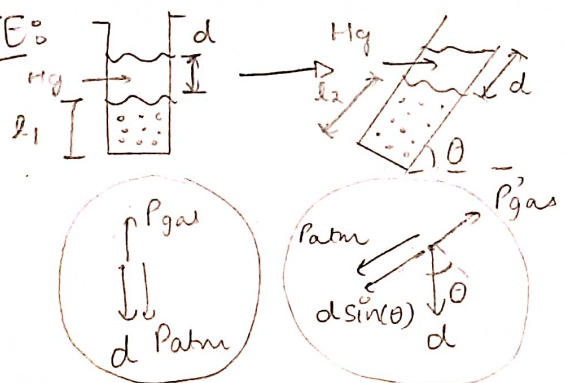 E:
d
Hg
Hg
l1
l2
d
θ
Pgas
d Patm
P'gas
Patm
d sin(θ)
θ
d